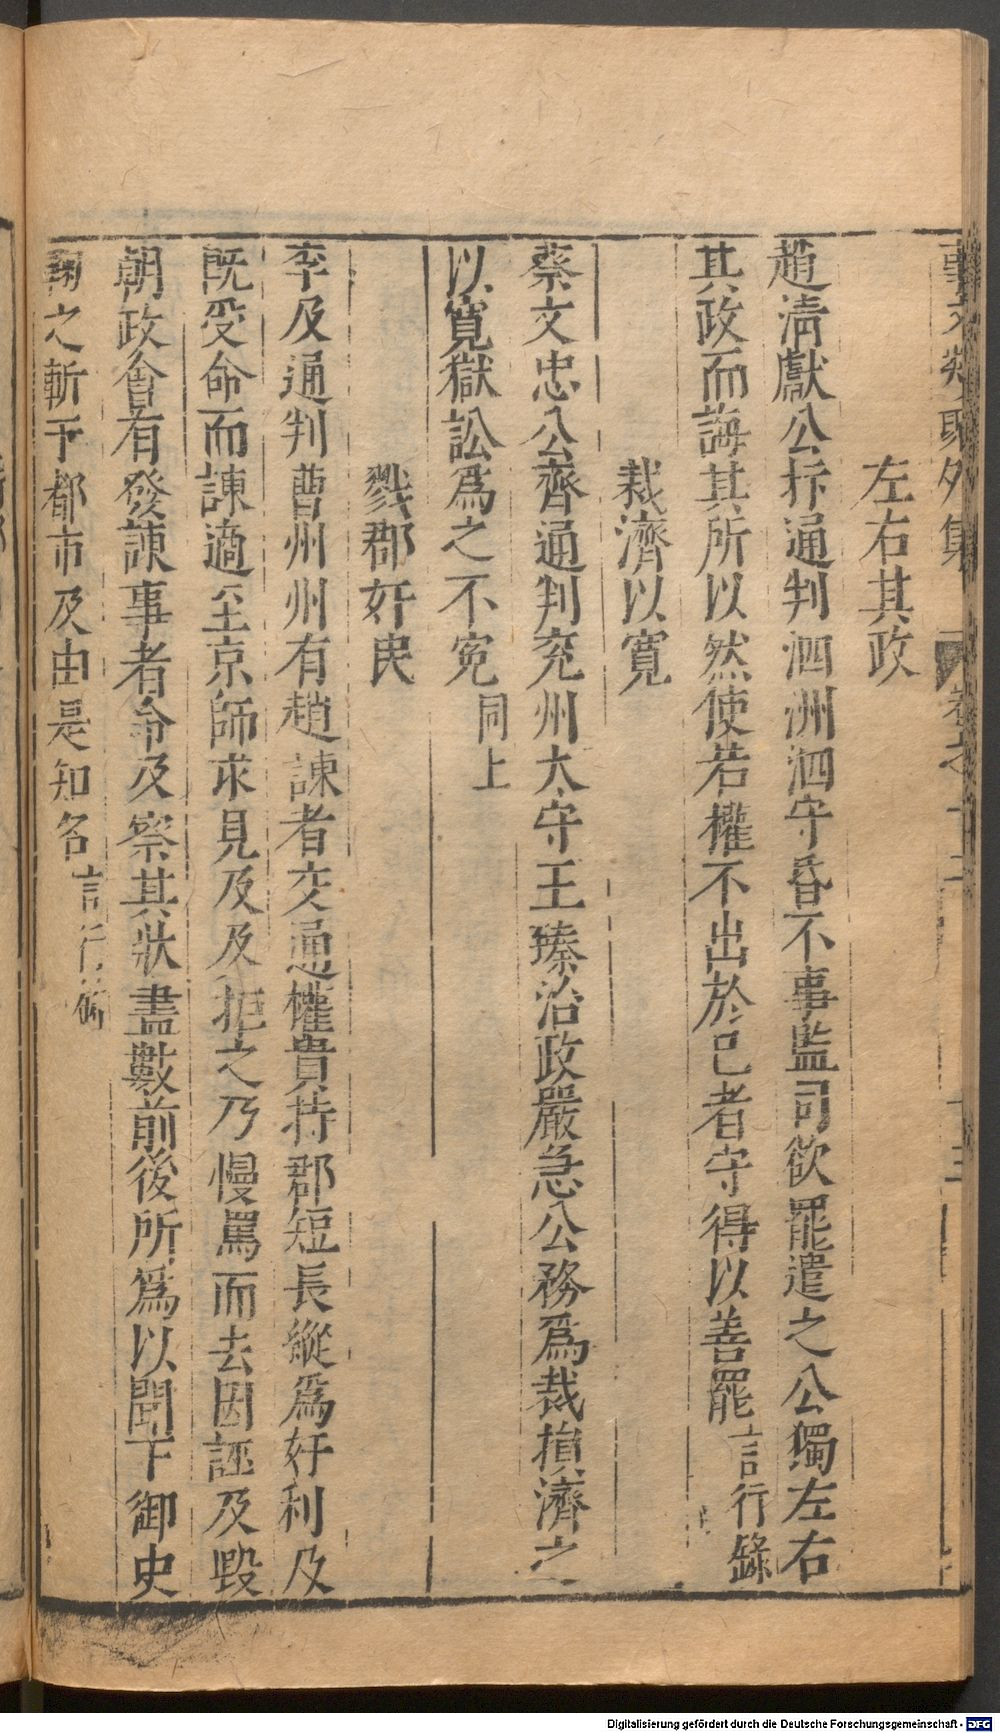 事文類聚外集 卷之十二 十三
左右其政
趙清獻公抃通判泗洲泗守昏不事監司欲罷遣之公獨左右
其政而誨其所以然使若權不出於已者守得以善罷言行錄
裁濟以寬
蔡文忠公齊通判兖州太守王臻治政嚴急公務爲裁損濟之
以寬獄訟爲之不寃同上
戮郡奸民
李及通判曹州州有趙諫者交通權貴持郡短長縱爲奸利及
旣受命而諫適至京師求見及及拒之乃慢罵而去因誣及毀
朝政會有發諫事者令及察其狀盡數前後所爲以聞下御史
鞫之斬于都市及由是知名言行錄
Digitalisierung gefördert durch die Deutsche Forschungsgemeinschaft - DFG